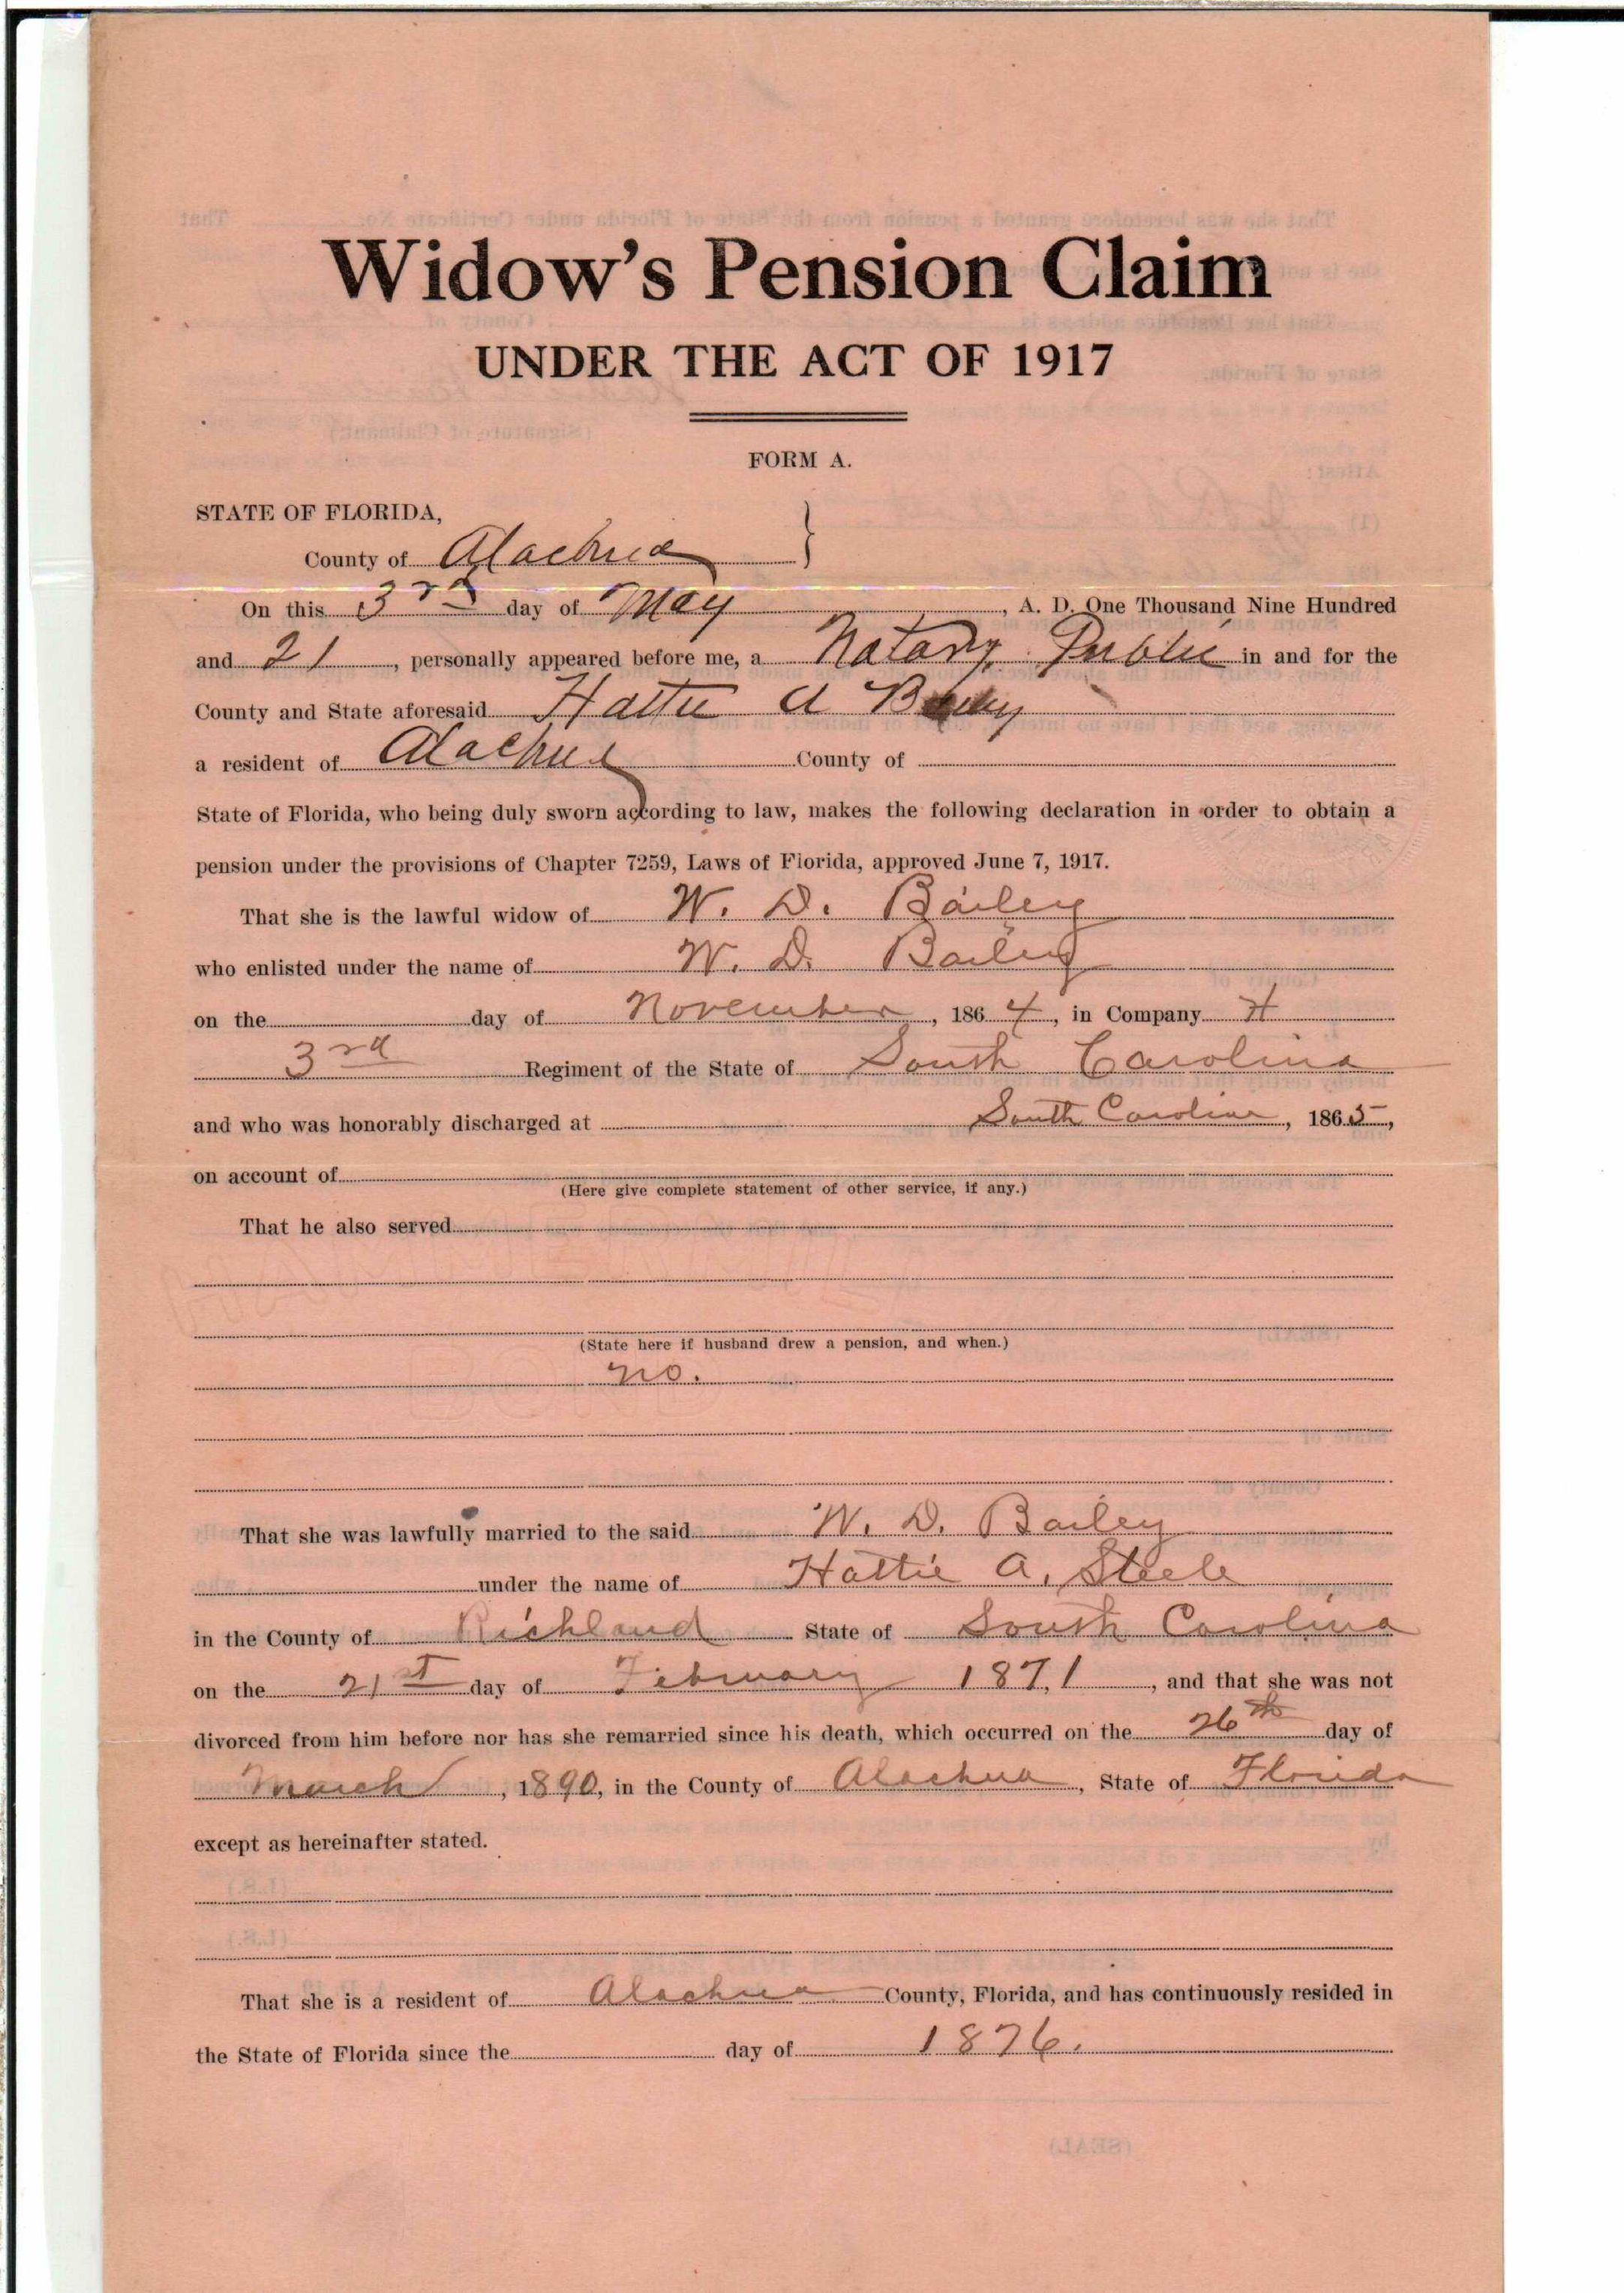 Widow's Pension Claim
UNDER THE ACT OF 1917
FORM A.
STATE OF FLORIDA,
County of Alachua
On this 3rd day of May, A. D. One Thousand Nine Hundred
and 21, personally appeared before me, a Notary Public in and for the
County and State aforesaid Hattie A Bailey
a resident of Alachua County of
State of Florida, who being duly sworn according to law, makes the following declaration in order to obtain a
pension under the provisions of Chapter 7259, Laws of Florida, approved June 7, 1917.
That she is the lawful widow of W. D. Bailey
who enlisted under the name of W. D. Bailey
on the day of November, 1864, in Company H
3rd Regiment of the State of South Carolina
and who was honorably discharged at South Carolina, 1865,
on account of
(Here give complete statement of other service, if any.)
That he also served
(State here if husband drew a pension, and when.)
no.
That she was lawfully married to the said W. D. Bailey
under the name of Hattie A. Steele
in the County of Richland State of South Carolina
on the 21st day of February 1871, and that she was not
divorced from him before nor has she remarried since his death, which occurred on the 26th day of
March, 1890, in the County of Alachua, State of Florida
except as hereinafter stated.
That she is a resident of Alachua County, Florida, and has continuously resided in
the State of Florida since the day of 1876.